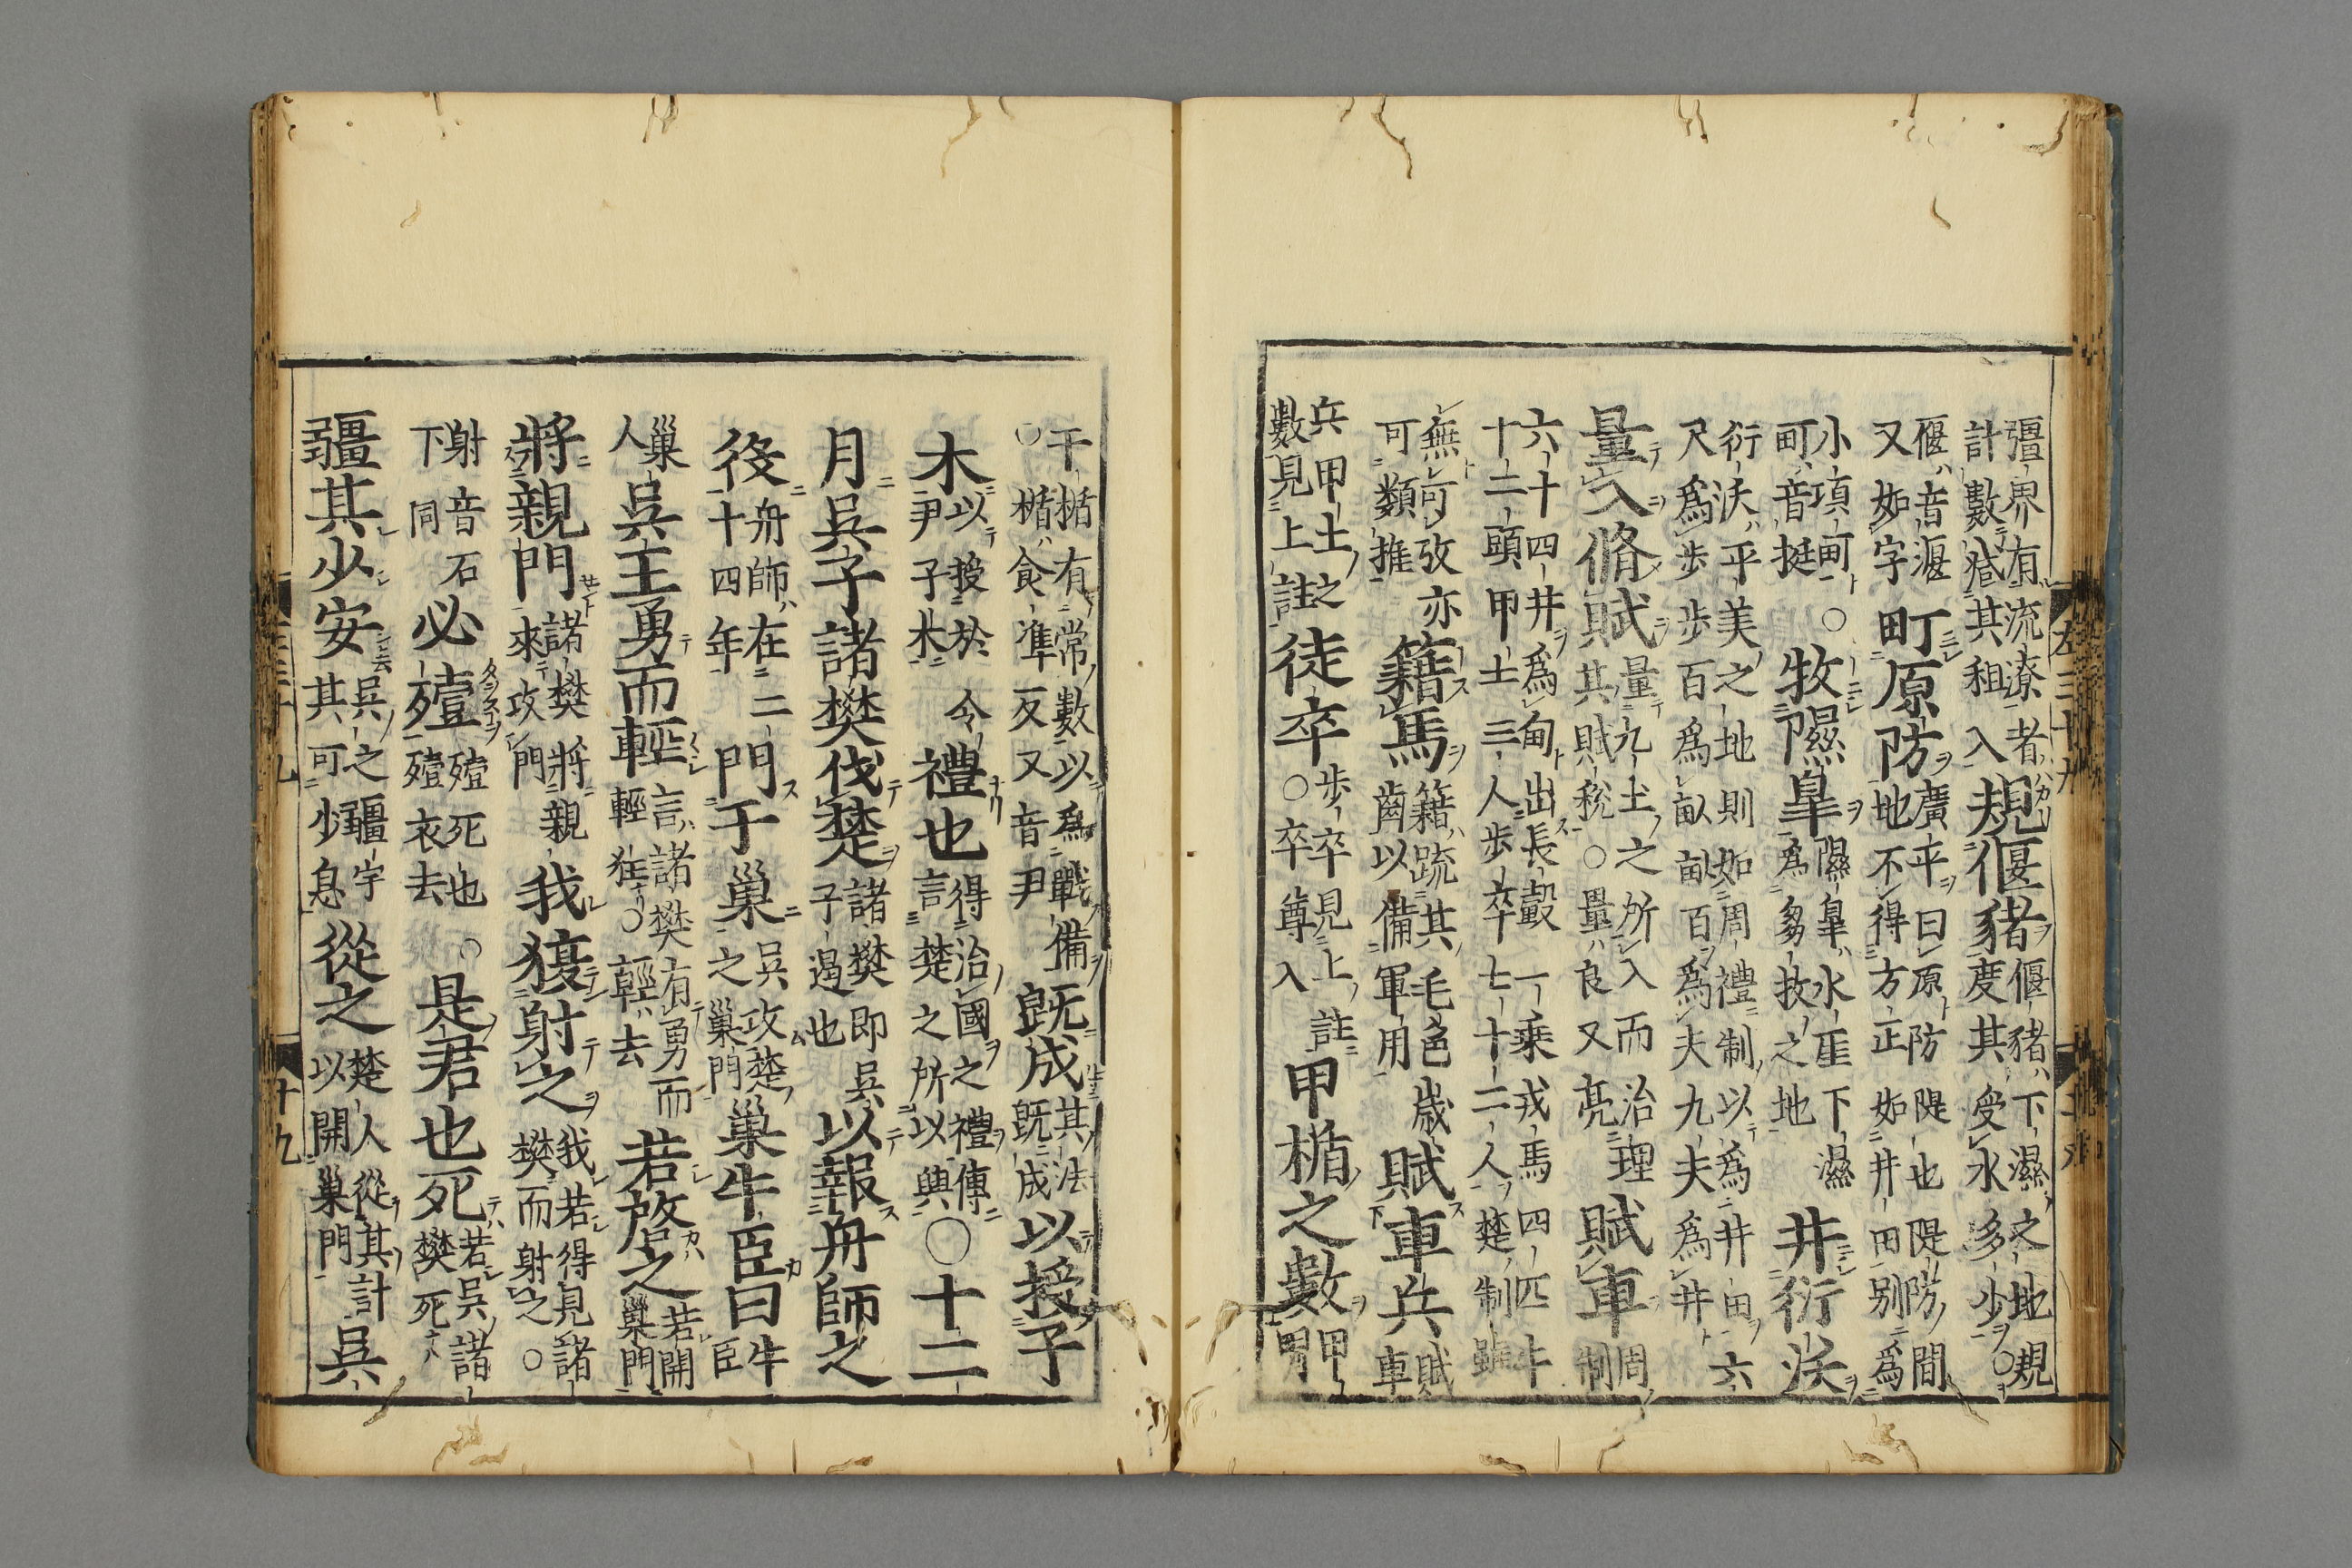 彊界有流潦者計數其租入規偃豬偃豬下濕之地規度其受水多少○
偃音湿又如字町原防廣平曰原防隄也隄防間地不得方正如井田别為
小項町○町音挺牧隰皐隰皐水厓下濕為芻牧之地井衍沃
衍沃平美之地則如周禮制以為井田六尺為步步百為畝畝百為夫九夫為井
量入脩賦量九土之所入而治理其賦稅○量良又亮賦車周制
六十四井為甸出長轂一乘戎馬四匹牛十二頭甲士三人步卒七十二人楚制雖
無可攷亦可類推籍馬籍䟽其毛色歲齒以備軍用賦車兵賦車
兵甲士之數見上註徒卒步卒見上註○卒尊入甲楯之數甲
左三十九
干楯有常數以為戰備○楯食凖反又音尹既成其法既成以授子
木以授於令尹子木禮也得治國之禮傳言楚之所以與○十二
月吳子諸樊伐楚諸樊即吳子遏也以報舟師之
役舟師在二十四年門于巢吳攻楚之巢門巢牛臣曰牛臣
巢人吳王勇而輕言諸樊有勇而輕狂○輕去若啓之若開巢門
將親門諸樊將親來攻門我獲射之我若得見諸樊而射之○
射音石下同必殪殪死也○殪衣去是君也死若吳諸樊死
疆其少安吳之疆宇其可少息從之楚人從其計以開巢門吳
十九